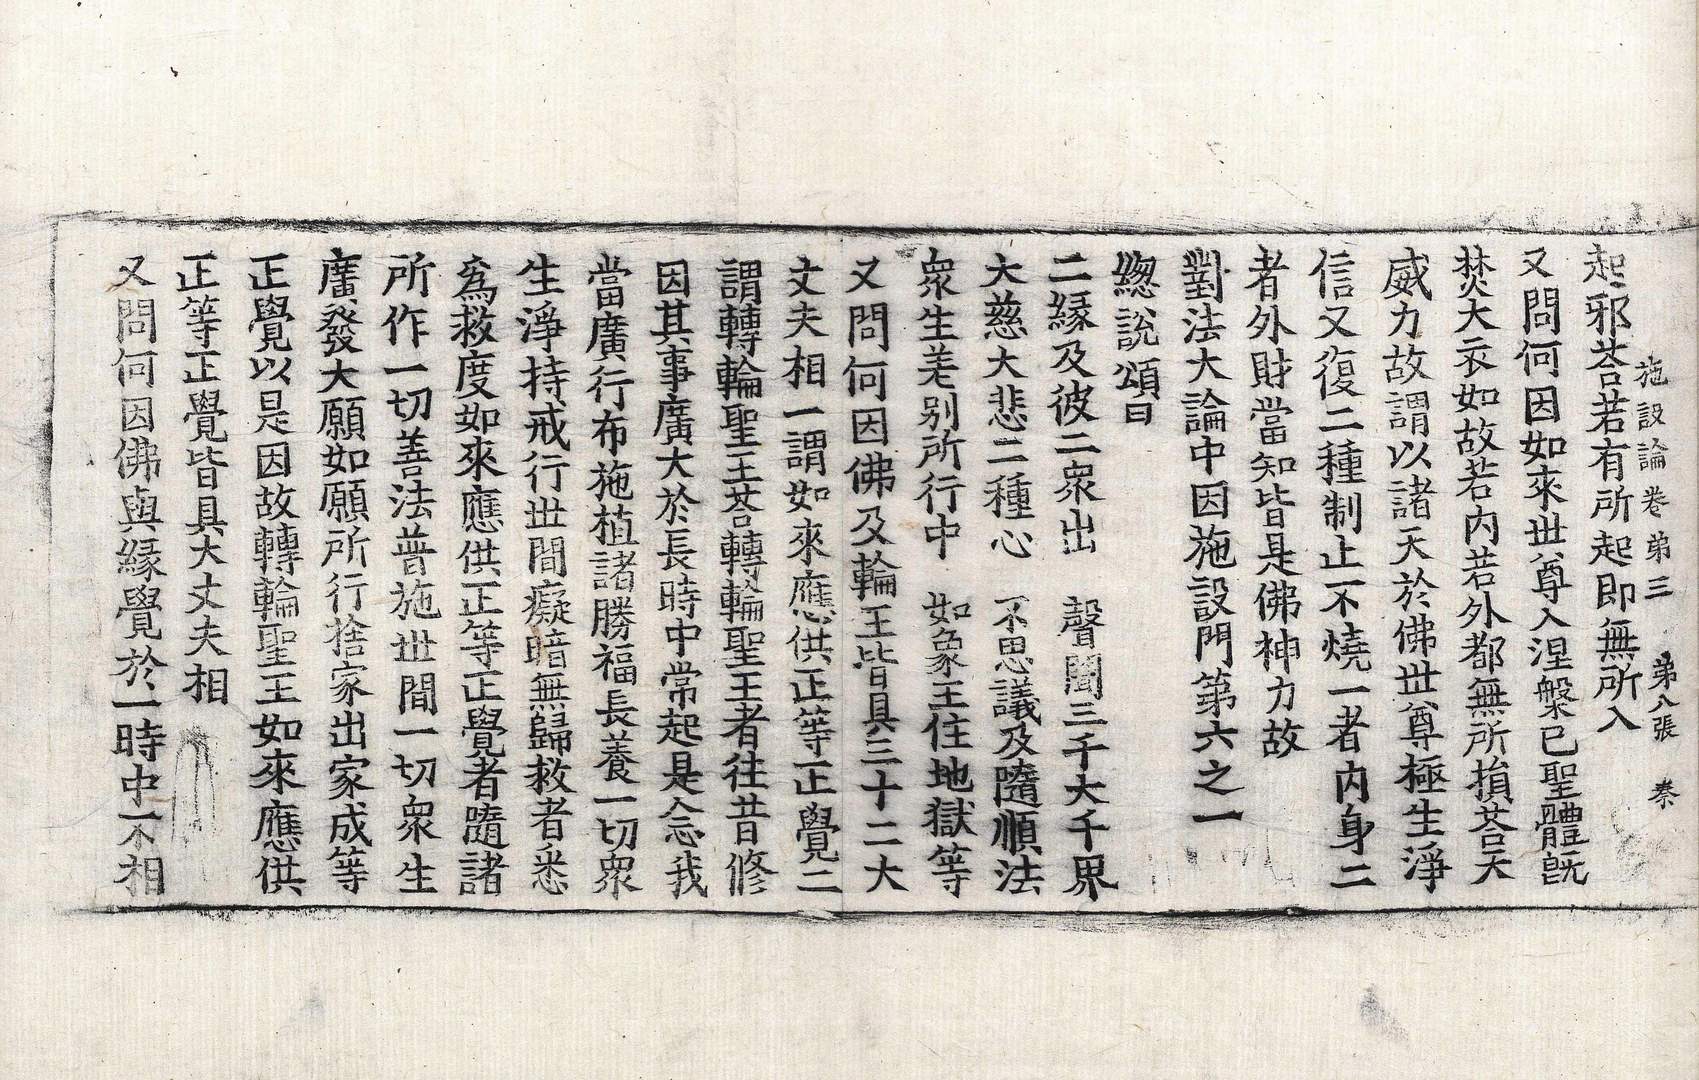 施設論卷第三　第八張　秦
起邪荅若有所起即無所入
又問何因如來世尊入涅槃已聖體旣
焚大衣如故若內若外都無所損荅天
威力故謂以諸天於佛世尊極生淨
信又復二種制止不燒一者內身二
者外財當知皆是佛神力故
對法大論中因施設門第六之一
緫說頌曰
二緣及彼二衆出　聲聞三千大千界
大慈大悲二種心　不思議及隨順法
衆生差別所行中　如象王住地獄等
又問何因佛及輪王皆具三十二大
丈夫相一謂如來應供正等正覺二
謂轉輪聖王荅轉輪聖王者往昔修
因其事廣大於長時中常起是念我
當廣行布施植諸勝福長養一切衆
生淨持戒行世間癡暗無歸救者悉
爲救度如來應供正等正覺者隨諸
所作一切善法普施世間一切衆生
廣發大願如願所行捨家出家成等
正覺以是因故轉輪聖王如來應供
正等正覺皆具大丈夫相
又問何因佛與緣覺於一時中不相